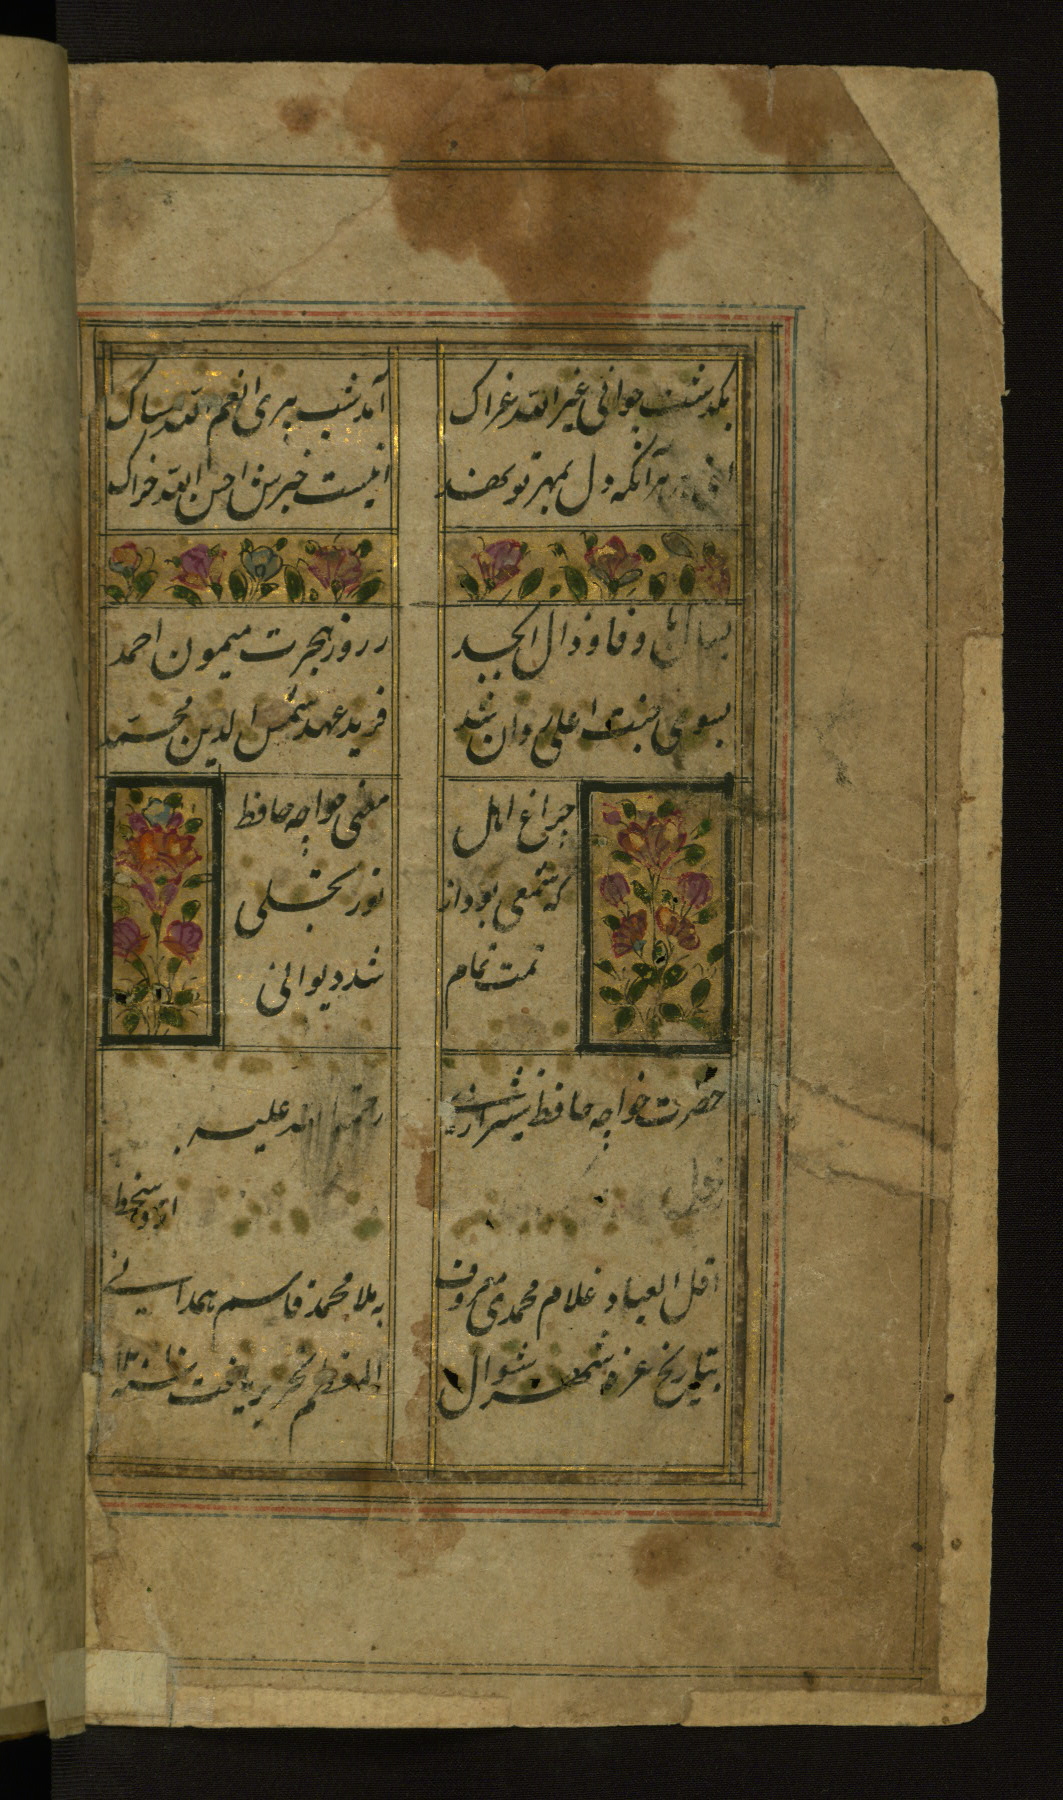 بگذشت جوانی غیر الله غراک
آمد شب پیری انعم الله مساک
هرآنکه دل بمهر تو نهند
نیست خبرش احسن الله خراک
بسال با و فا و ذال ابجد
ز روز هجرت میمون احمد
بسوی جنت اعلی روان شد
فرید عهد شمس الدین محمد
چراغ اهل معنی خواجه حافظ
که شمعی بود از نور تجلی
تمت تمام شد دیوانی
حضرت خواجه حافظ شیرازی
رحمة الله علیه
اقل العباد غلام محمدی معروف
به ملا محمد قاسم همدانی
بتاریخ غره شهر شوال
المعظم تحریر یافت سنه